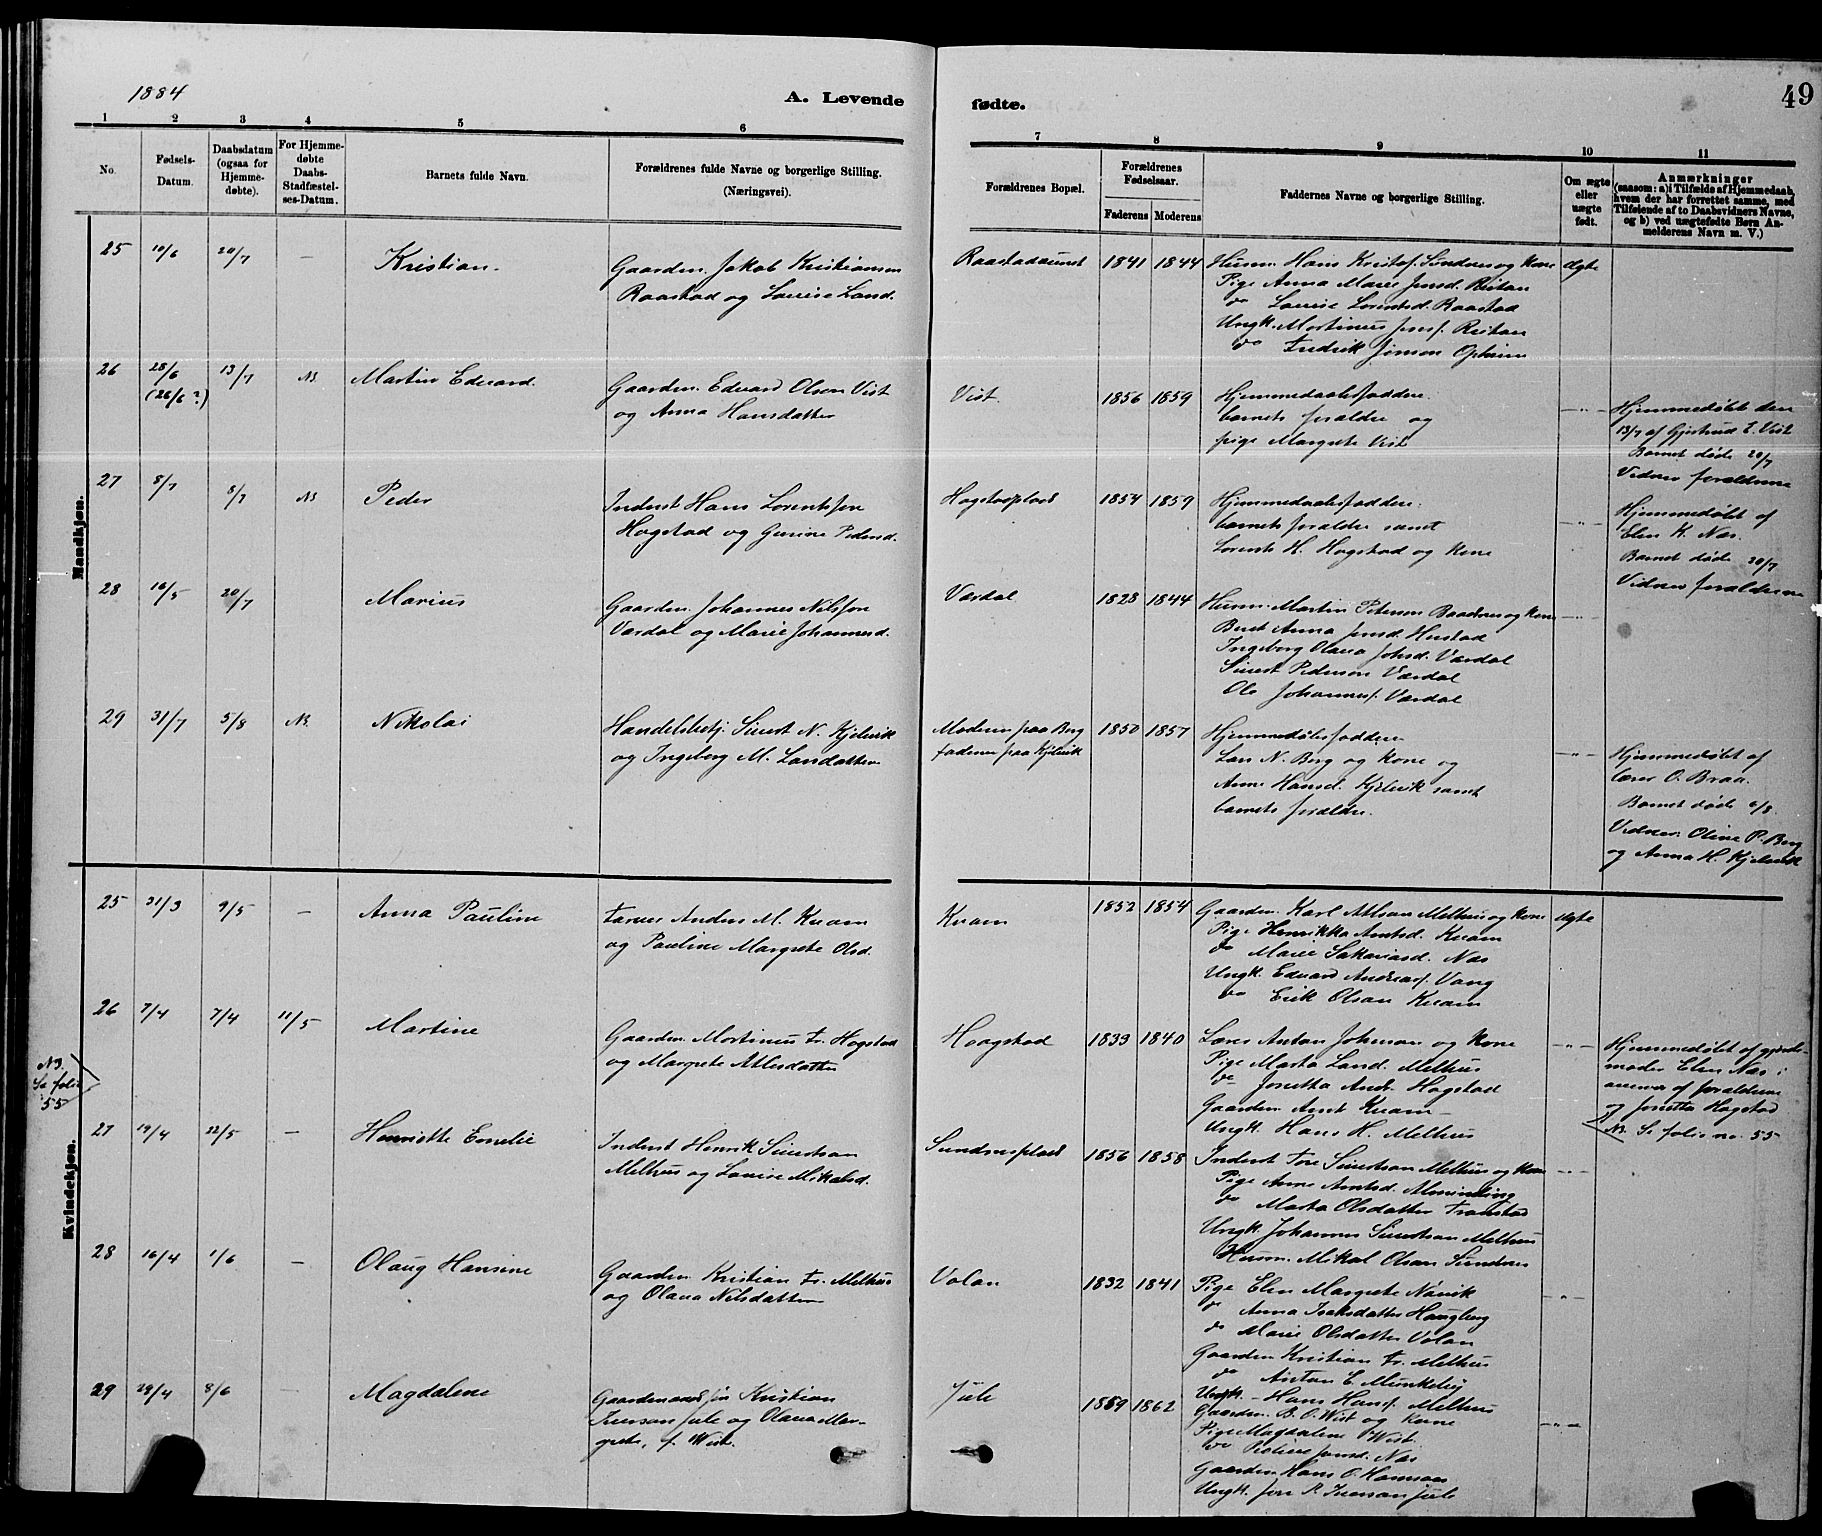 1884
A. Levende
fødte.
49
1 2 3 4 5 6 7 8 9 10 11
No.
Fødsels-Datum.
Daabsdatum (ogsaa for Hjemme-døbte).
For Hjemme-døbte Daabs-Stadfæstel-ses-Datum.
Barnets fulde Navn.
Forældrenes fulde Navne og borgerlige Stilling. (Næringsvei).
Forældrenes Bopæl.
Forældrenes Fødselsaar.
Faderens Moderens
Faddernes Navne og borgerlige Stilling.
Om ægte eller uægte født.
Anmærkninger
(saasom: a) i Tilfælde af Hjemmedaab,
hvem der har forrettet samme, med
Tilføiende af to Daabsvidners Navne,
og b) ved uægtefødte Børn An-
melderens Navn m. V.)
Mandkjøn.
25 10/6 20/7 — Kristian.
Gaardm. Jakob Kristiansen
Raastad og Lovise Land.
1841 1844
Husm. Hans Kristof. Sundnes og Kone
Pige Anna Marie Jensd. Ristan
do Lovise Lorentsd. Raastad
Ungk. Martinus Jensf. Ristan
do Fredrik Jonson Opheim
ægte
26 28/6 (26/6?) 13/7 NB Martin Edvard.
Gaardm. Edvard Olson Vist
og Anna Hansdatter
Vist 1856 1859
Hjemmedaabsfaddere.
barnets forældre og
pige Margrete Vist
— „ —
Hjemmedøbt den
13/7 af Gjertrud E. Vist
Barnet døde 20/7
Vidner forældrene
27 8/7 8/7 NB Peder
Inderst Hans Lorentsen
Hogstad og Gurine Pedersd.
Hogstadplads 1854 1859
Hjemmedaabsfaddere:
barnets forældre samt
Lorents H. Hogstad og Kone
— „ —
Hjemmedøbt af
Elen K. Næs.
Barnet døde 20/7
Vidner forældrene
28 16/5 20/7 Marius
Gaardm. Johannes Nilsson
Værdal og Marie Johannesd.
Værdal 1828 1844
Husm. Martin Peterson Baadsnes og Kone
Beret Anna Jensd. Hustad
Ingeborg Olava Johsd. Værdal
Sivert Pederson Værdal
Ole Johannesf. Værdal
— „ —
29 31/7 5/8 NB. Nikolai
Handelsbetj. Sivert N. Kjelvik
og Ingeborg M. Larsdatter
Moderen paa Berg
faderen paa Kjelvik
1850 1857
Hjemmedøbtsfaddere
Lars N. Berg og Kone og
Anne Hansd. Kjelvik samt
barnets forældre.
— „ —
Hjemmedøbt af
lærer O. Braa.
Barnet døde 6/8.
Vidner: Oline P. Berg
og Anna H. Kjelvik
Kvindekjøn.
25 31/3 9/5 — Anna Pauline
Farver Anders M. Kvam
og Pauline Margrete Olsd.
Kvam 1852 1854
Gaardm. Karl Atlsen Melhus og Kone
Pige Henrikka Arntsd. Kvam
do Marie Sakariasd. Næs
Ungk. Edvard Andreasf. Vang
do Erik Olsen Kvam
ægte
26 7/4 7/4 11/5 Martine
Gaardm. Mortinus Fr. Hogstad
og Margrete Atlesdatter
Haagstad 1839 1840
Lærer Anton Johnsen og Kone
Pige Marta Land. Melhus
do Jonetta Andr. Hogstad
Gaardm. Arnt Kvam
Ungk. Hans H. Melhus
— „ —
Hjemmedøbt af gjorde-
moder Elen Næs i
nærvær af forældrene
og Jonetta Hogstad
NB. Se folio no. 55
NB.
Se folio
55
27 19/4 22/5 — Henriette Emelie
Inderst Henrik Sivertsen
Melhus og Lovise Mikalsd.
Sundnesplads 1856 1858
Inderst Tore Sivertsen Melhus og Kone
Pige Anne Arntsd.
do Marta Olsdatter Transtad
Ungk. Johannes Sivertsen Melhus
Husm. Mikal Olsen Sundnes
— „ —
28 16/4 1/6 — Olaug Hansine
Gaardm. Kristian Fr. Melhus
og Olava Nilsdatter
Volan 1832 1841
Pige Elen Margrete Nævik
do Anna Isaksdatter Haugberg
do Marie Olsdatter Volan
Gaardm. Kristian Fr. Melhus
do Anton E. Munkeby
Ungk. — Hans Hansf. Melhus
— „ —
29 29/4 8/6 — Magdalene
Gaardmandssøn Kristian
Iverson Jule og Olava Mar-
grete, f. Wist.
Jule 1859 1862
Gaardm. B. O. Wist og Kone
Pige Magdalene Wist
do Jensd. Næs
Gaardm. Hans O. Hansen
Ungk. Jon P. Iverson Jule
— „ —